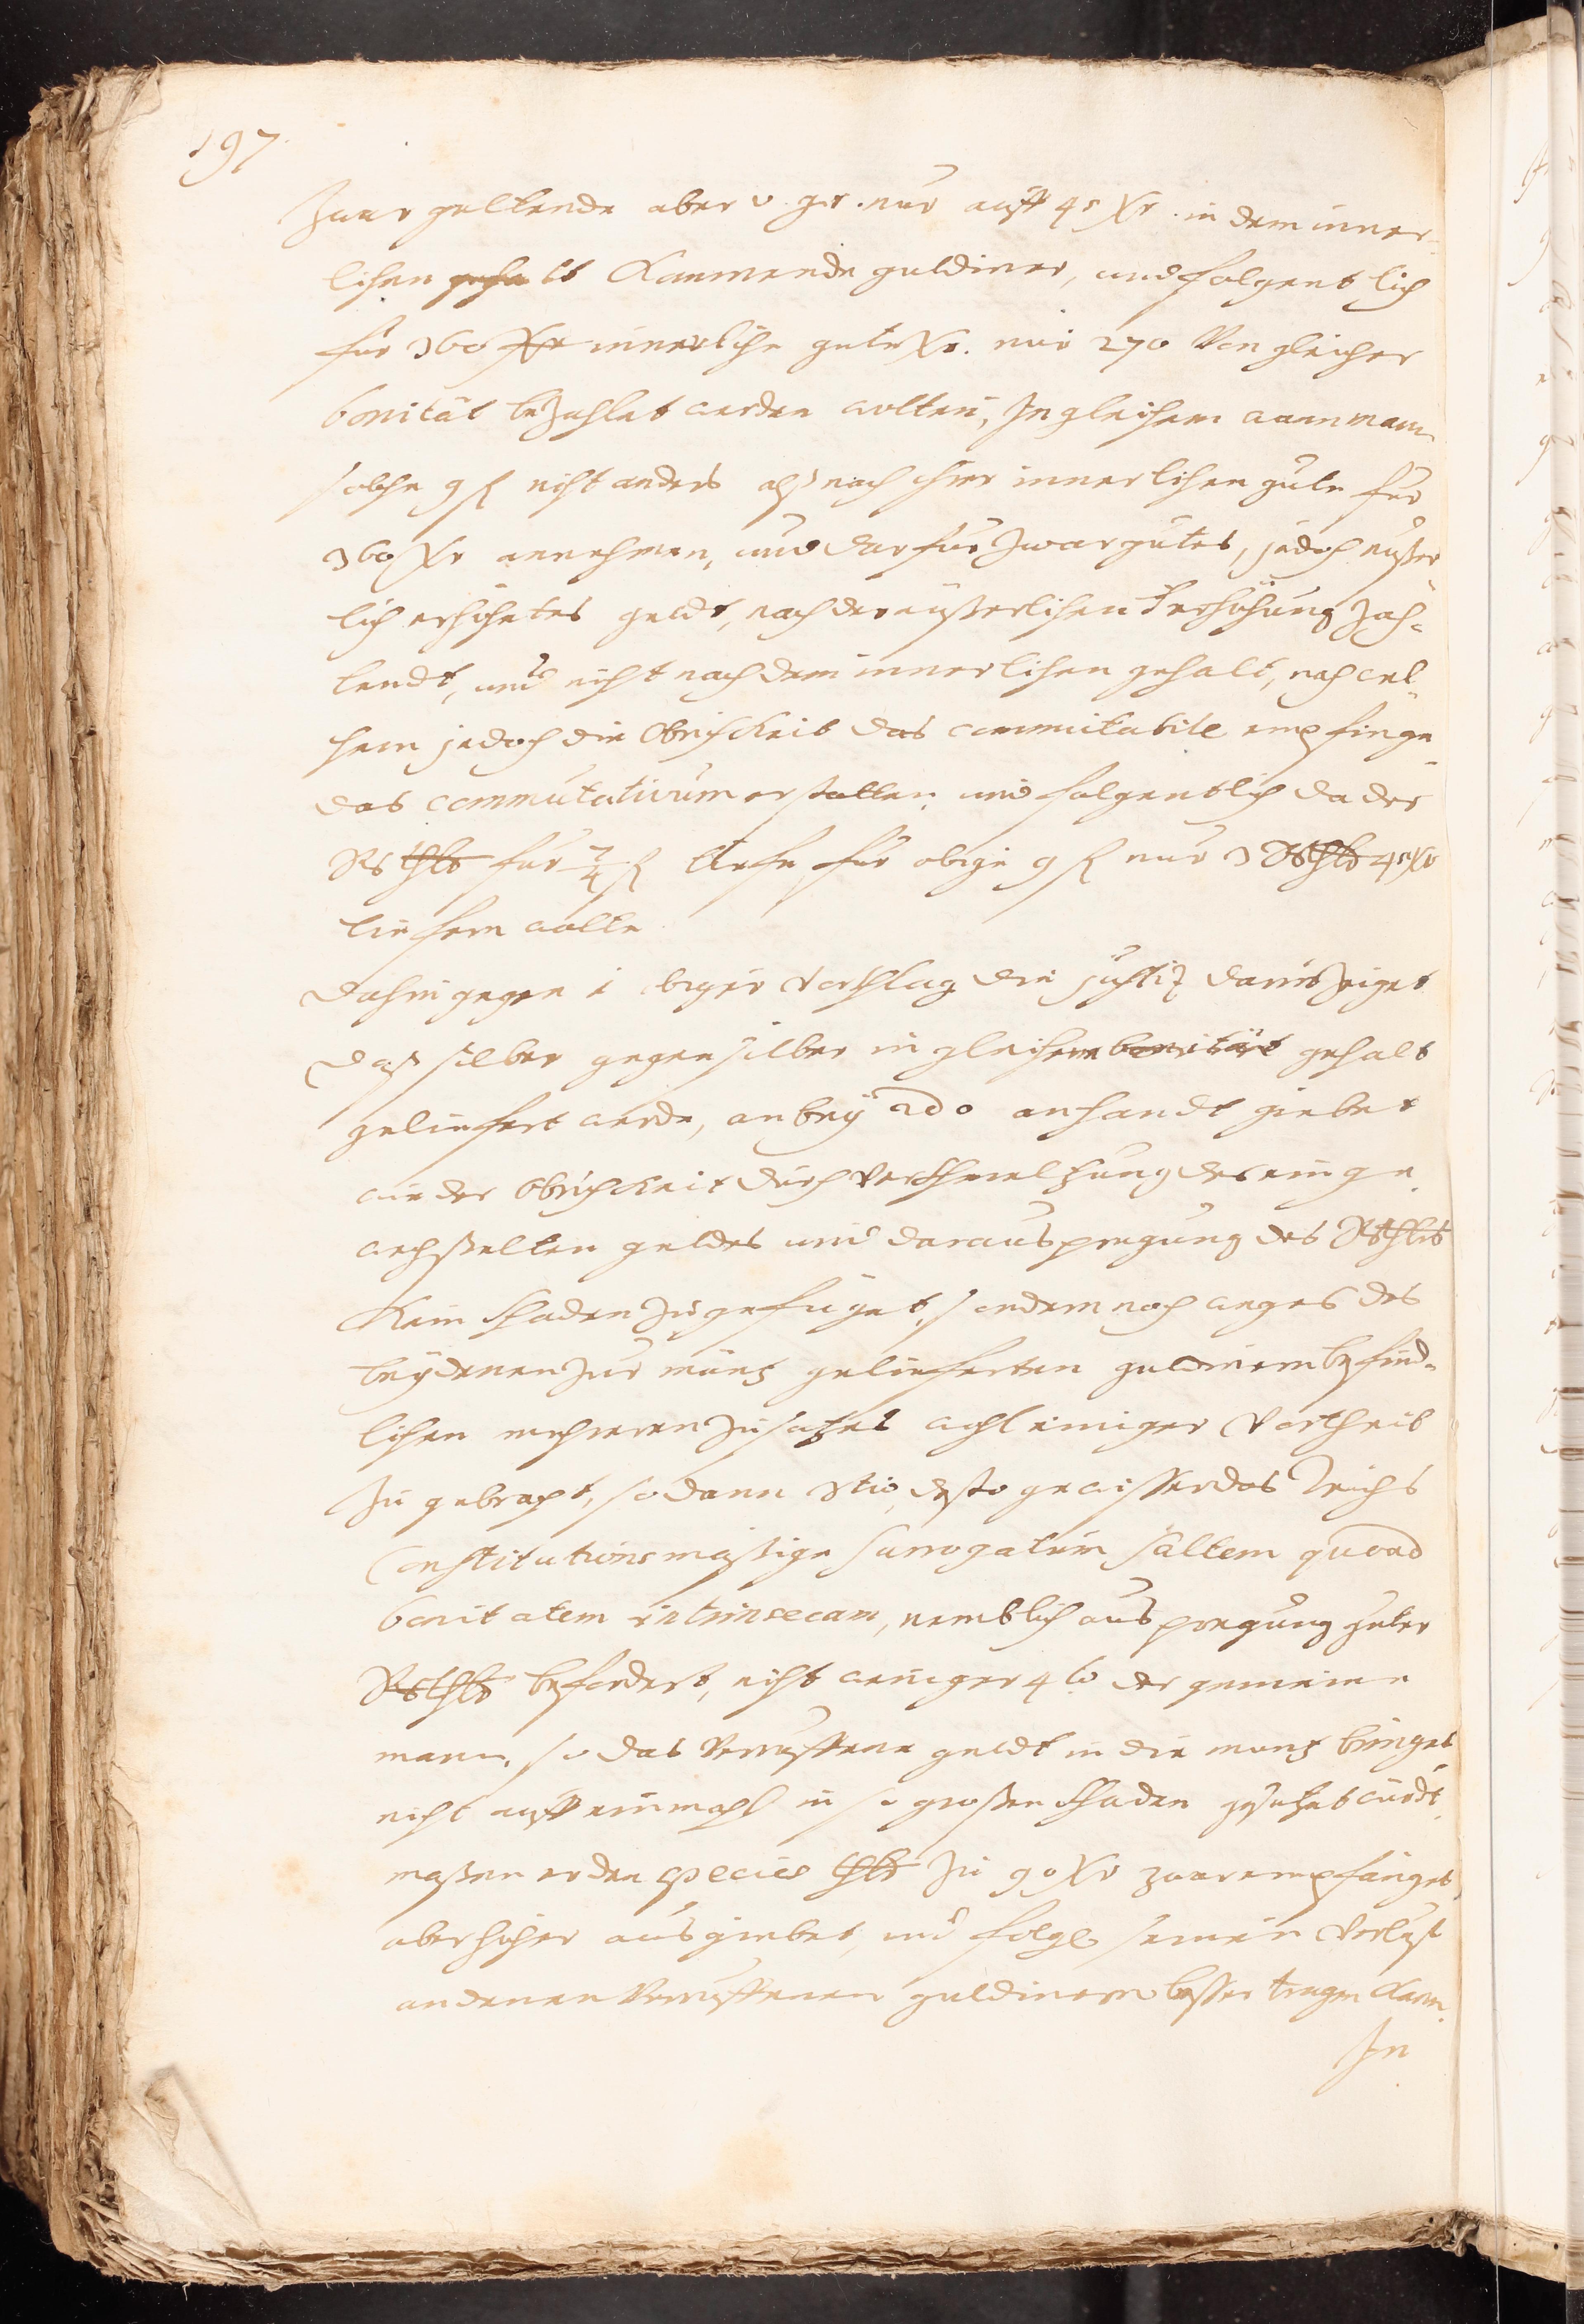 197
Zwar geltende aber v. gr. nur auff 45 Xr. in dem inner-
lichen gehalt kommende guldiner, und folgentlich
für 360 Xr innerliche gute Xr. nur 270 Von gleicher
bonität bezahlet werden wolten, Ingleichem wann man
solche 9 fl nicht anders alß nach ihrer innerlichen güte für
360 Xr annehmen, und darfür zwar gutes, jedoch eußer
lich erhöhetes geldt, nach der eüßerlichen Erhöhung zah-
lendt, und nicht nach dem innerlichen gehalt, nach wel-
chem jedoch die Obrichkeit das commutabile empfinge
das commutativum erstatten, und folgentlich da der
Rsthlr für fl für obige 9 fl nur 3 Rsthlr 45 Xr
liefern wolte
Dahingegen i obiger Vorschlag die justiz darin zeiget
daß silber gegen silber in gleichem bonität gehalt
geliefert werde, anbey 2do anhandt giebet
wie der Obrichkeit durch Verschmelzung des einge-
wechßelten geldes und darauspregung des Rsthlrs
Kein schaden zugefüget, sondern noch wegen des
bey denen zur müntz gelieferten guldinern befind-
lichen mehreren zusatzes wohl einiger Vortheil
zu gebracht, so dann 3tio, desto gewisser das Reichs
Constitutions mäßige surrogatum saltem quoad
bonitatem intrinsecam, nemblich auspregung guter
Rsthlr befördert, nicht weniger 4to der gemeine
mann, so das Verruffene geldt in die muntz bringet
nicht auff einmahl in so großen schaden gesetzet würdt
maßen er den species thlr zu 90 Xr zwar empfanget,
aber höher ausgiebet, und folgl. seinen Verlust
an denen Verruffenen guldinern besser tragen kann.
In